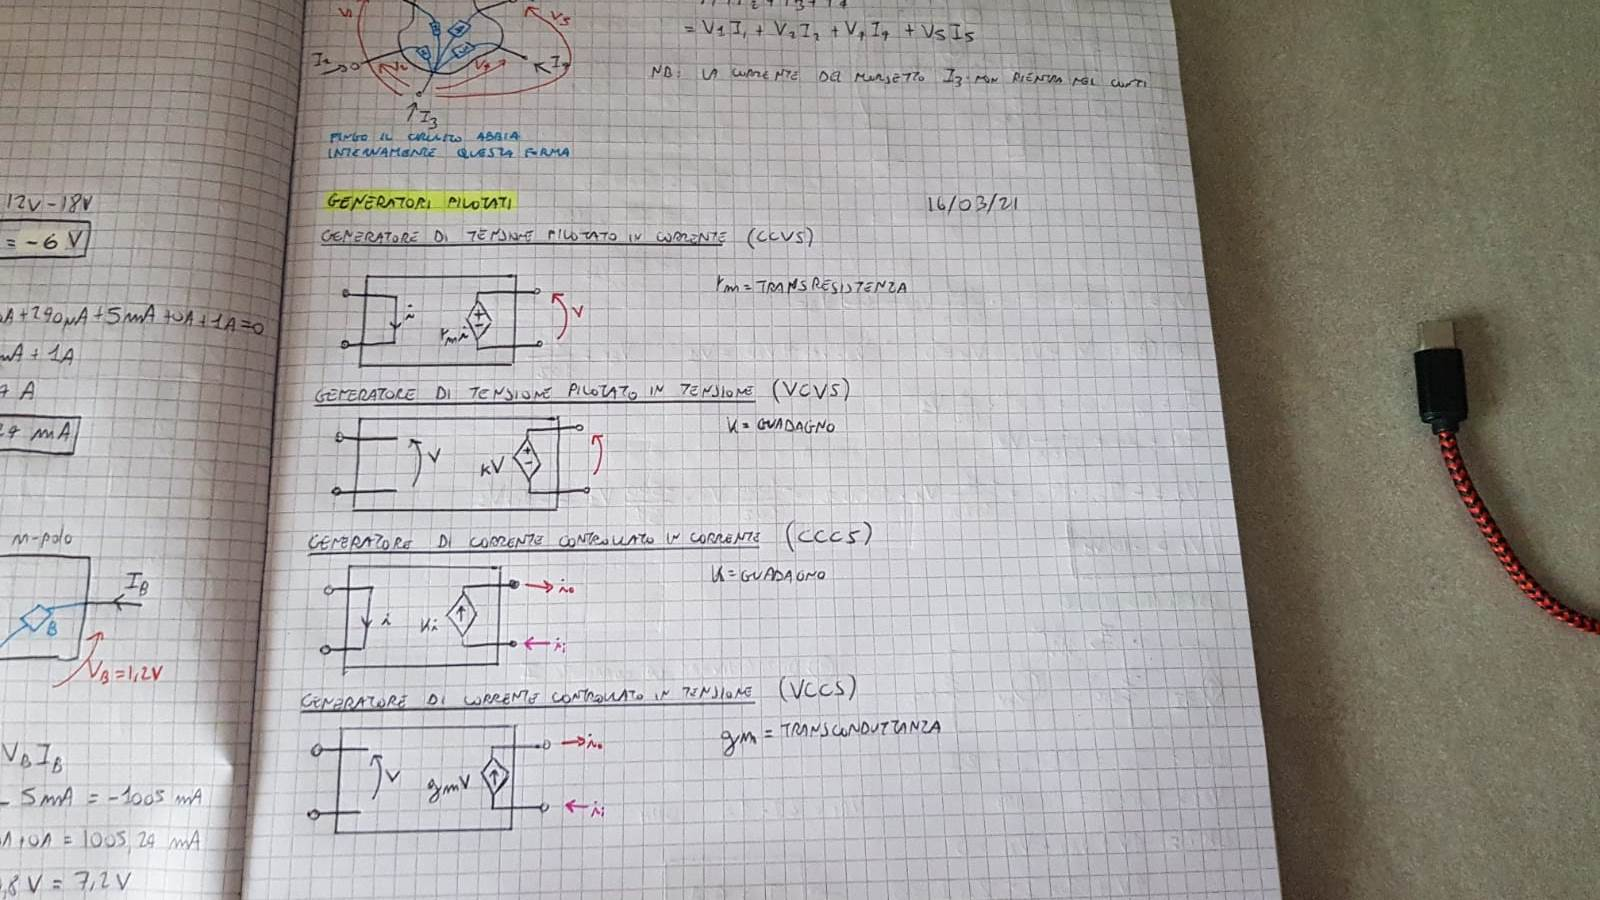 12V-18V
= -6 V
A+290µA+5mA+0A+1A=0
mA + 1A
A
mA
m-polo
IB
B
VB=1,2V
VBIB
- 5mA = -1005 mA
A+0A = 1005,29 mA
,8V = 7,2V
V1
V5
I2
V2
V4
I3
= V1I1 + V2I2 + V4I4 + V5I5
NB: LA CORRENTE DEL MORSETTO I3 NON RIENTRA NEI CONTI
FINGO IL CIRCUITO ABBIA
INTERNAMENTE QUESTA FORMA
GENERATORI PILOTATI
16/03/21
GENERATORE DI TENSIONE PILOTATO IN CORRENTE (CCVS)
rm = TRANSRESISTENZA
i
rmi
+
-
V
GENERATORE DI TENSIONE PILOTATO IN TENSIONE (VCVS)
K = GUADAGNO
V
KV
+
-
GENERATORE DI CORRENTE CONTROLLATO IN CORRENTE (CCCS)
K = GUADAGNO
i
Ki
io
ii
GENERATORE DI CORRENTE CONTROLLATO IN TENSIONE (VCCS)
gm = TRANSCONDUTTANZA
V
gmV
io
ii